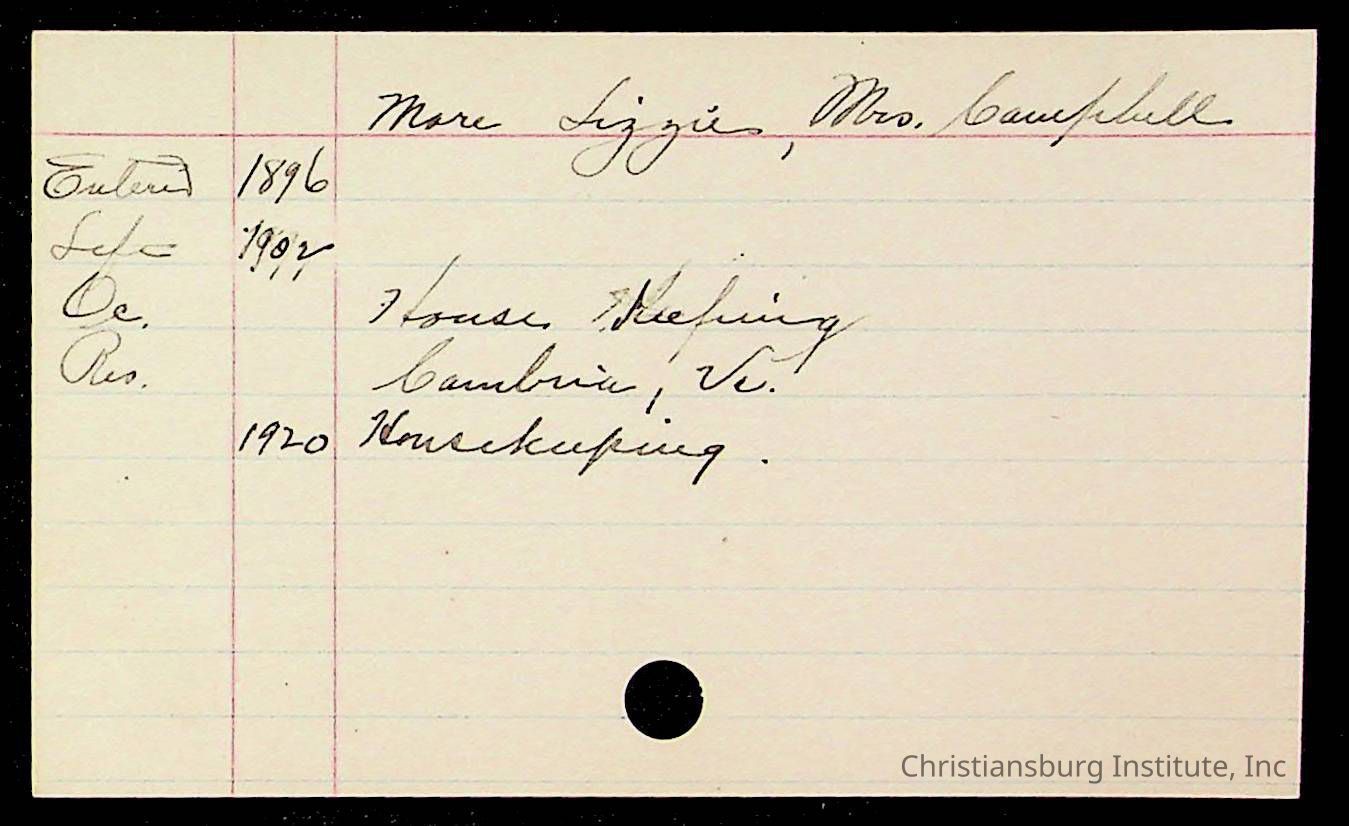 More Lizzie, Mrs. Campbell
Entered 1896
Left 1902
Oc. House Keeping
Res. Cambria, Va.
1920 Housekeeping.
Christiansburg Institute, Inc